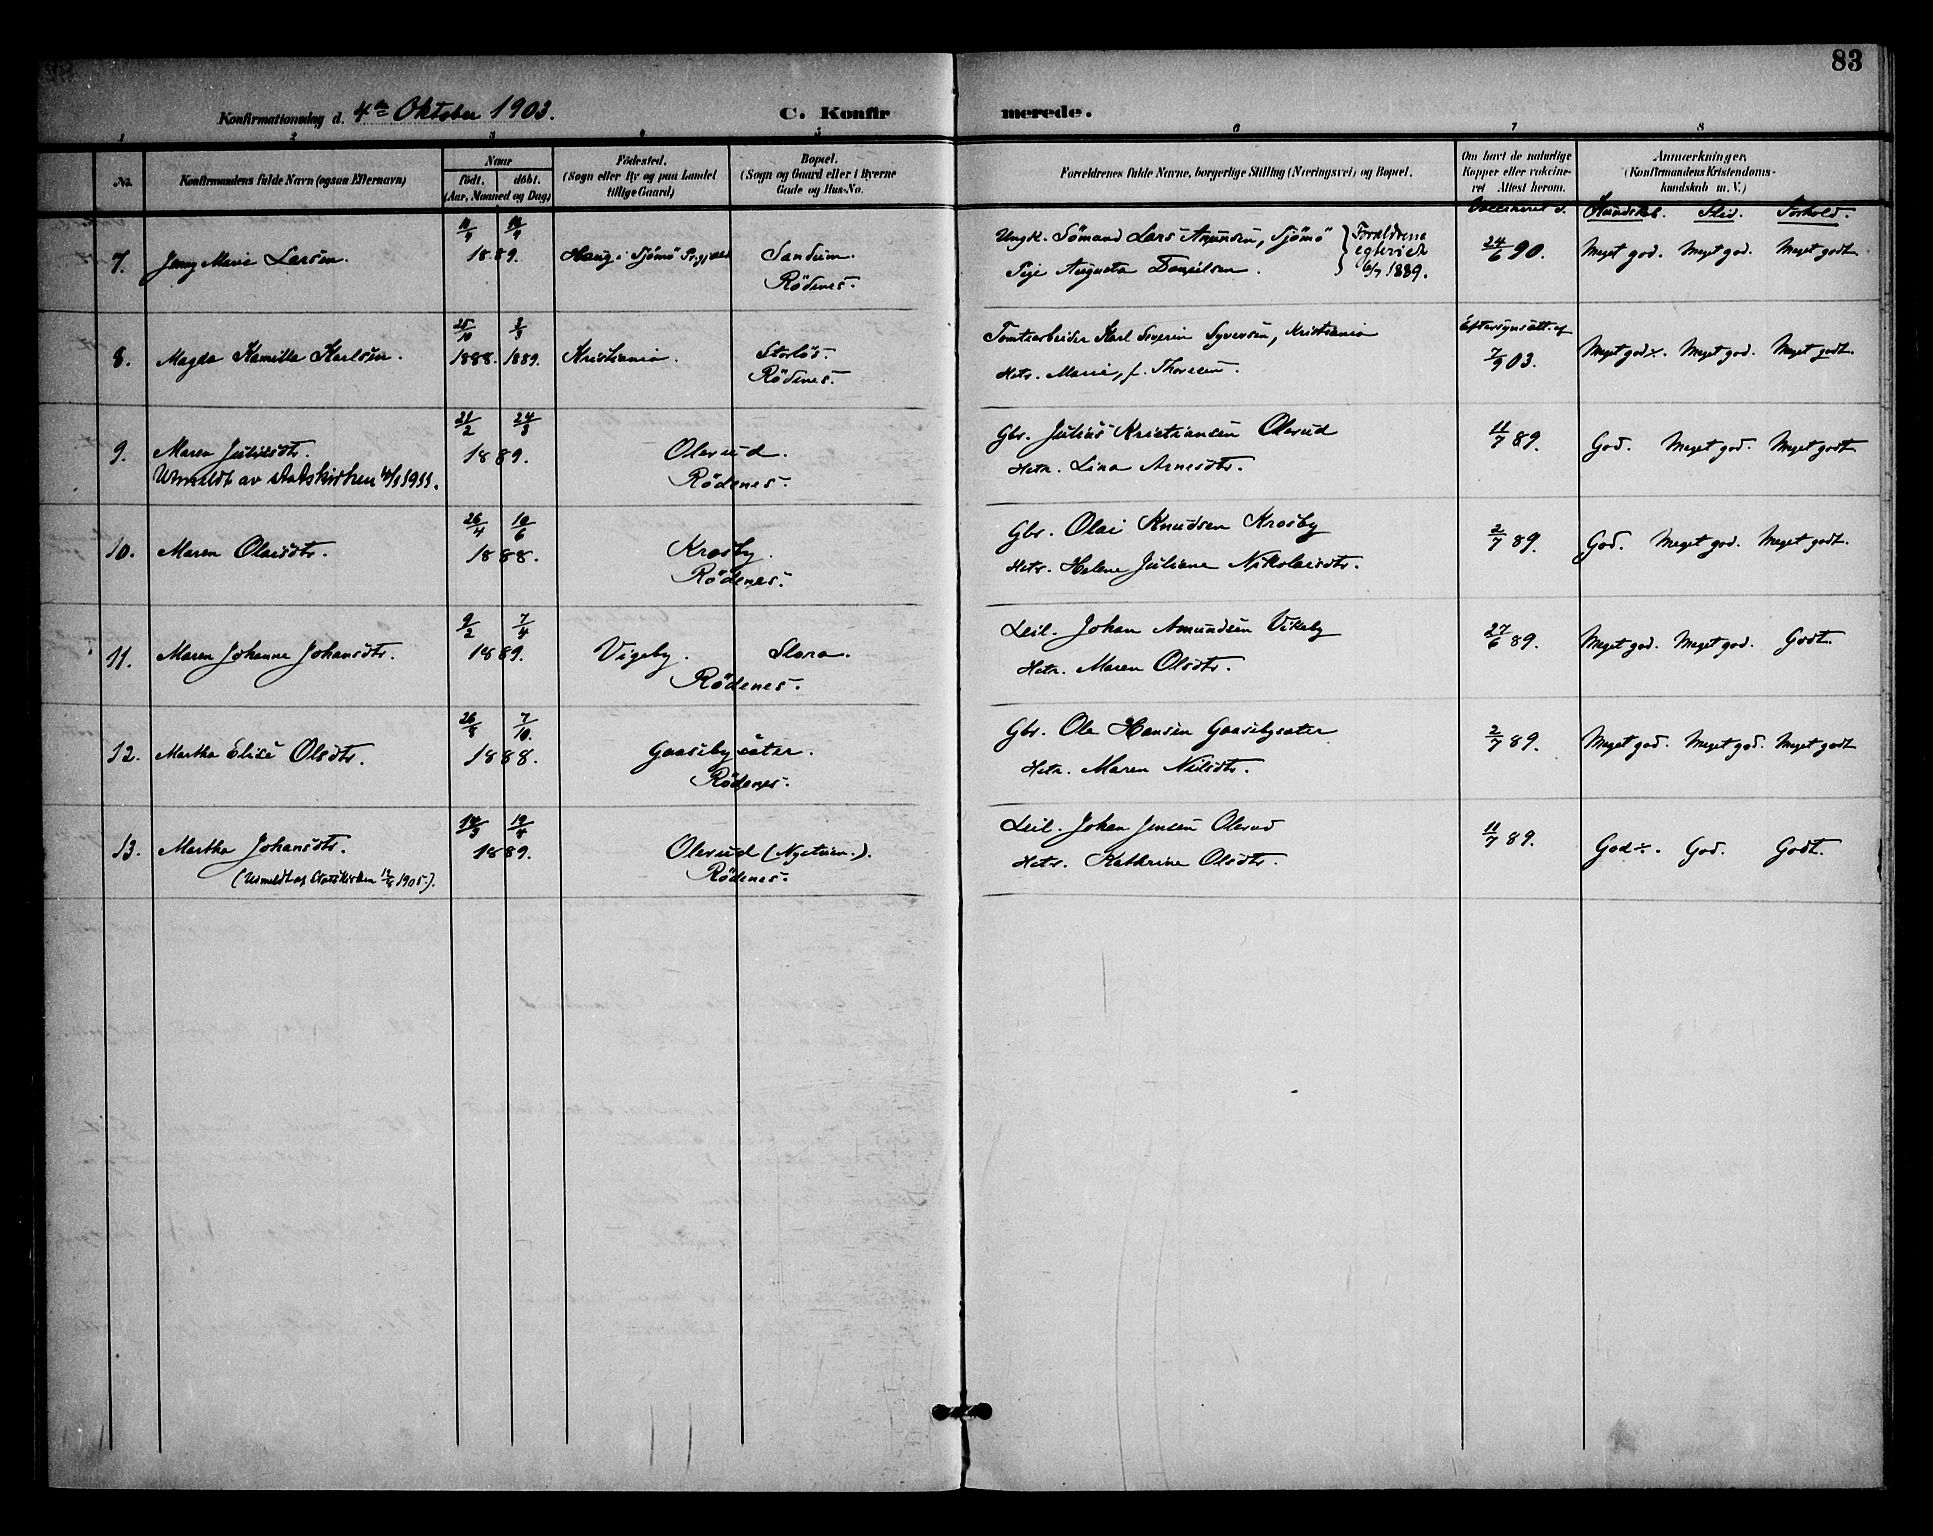 83
Konfirmationsdag d. 4de Oktober 1903. C. Konfirmerede.
1 2 3 4 5 6 7 8
No. Konfirmandens fulde Navn (ogsaa Efternavn)
Naar
födt. döbt.
(Aar, Maaned og Dag)
Födested.
(Sogn eller By og paa Landet
tillige Gaard)
Bopæl.
(Sogn og Gaard eller i Byerne
Gade og Hus-No.
Forældrenes fulde Navne, borgerlige Stilling (Næringsvei) og Bopæl.
Om havt de naturlige
Kopper eller vakcine-
ret Attest herom.
Anmærkninger.
(Konfirmandens Kristendoms-
kundskab m. V.)
Vaccineret d. Kundskb. Flid. Forhold.
7. Jenny Marie Larsen. 1889. Haug i Sjömö Prgjæld Sandum. Rödenes.
Ungk. Sömand Lars Amundsen, Sjömö
Pige Augusta Danielsen.
Forældrene
egteviet
6/7 1889.
24/6 90. Meget god. Meget god. Meget godt
8. Magda Kamilla Karlsen. 25/10 1888. 3/3 1889. Kristiania. Storlös. Rödenes.
Tomtearbeider Karl Severin Syversen, Kristiania
Hstr. Marie, f. Thoresen.
Eftersynsatt. af
7/9 03. Meget god÷. Meget god. Meget godt.
9. Maren Juliusdtr. 21/2 24/3 1889. Olerud. Rödenes.
Utmeldt av statskirken 1911.
Gbr. Julius Kristiansen Olerud
Hstr. Lina Arnesdtr.
11/7 89. God. Meget god. Meget godt
10. Maren Olaisdtr. 26/4 10/6 1888. Krosby. Rödenes.
Gbr. Olai Knudsen Krosby
Hstr. Helene Juliane Nikolaisdtr.
2/7 89. God. Meget god. Meget godt.
11. Maren Johanne Johansdtr. 9/2 7/4 1889. Vigeby. Slora. Rödenes.
Leil. Johan Amundsen Vikeby
Hstr. Maren Olsdtr.
27/6 89. Meget god. Meget god. Godt.
12. Martha Elise Olsdtr. 26/8 7/10. 1888. Gaasebysäter. Rödenes.
Gbr. Ole Hansen Gaasebysäter
Hstr. Maren Nilsdtr.
2/7 89. Meget god. Meget god. Meget godt
13. Martha Johansdtr. 14/3 19/4 1889. Olerud (Nystuen.). Rödenes.
(Udmeldt af Statskirken 1905).
Leil. Johan Jensen Olerud
Hstr. Kathrine Olsdtr.
11/7 89. God÷. God. Godt.